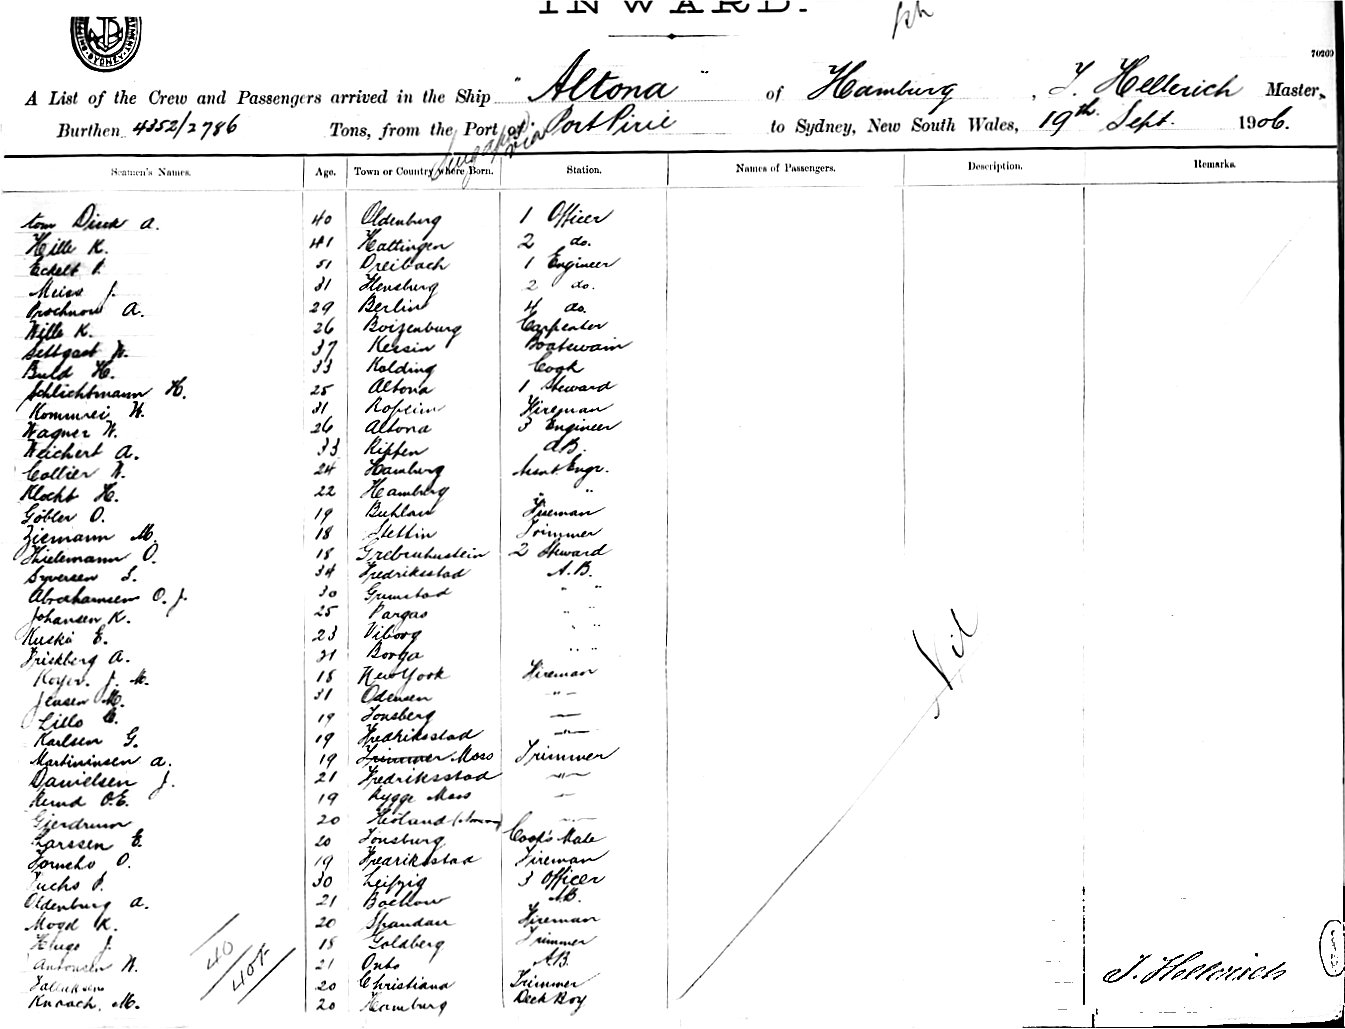 INWARD.
70209
A List of the Crew and Passengers arrived in the Ship "Altona" of Hamburg, J. Hellerich Master,
Burthen 4352/2786 Tons, from the Port of Singapore via Port Pirie to Sydney, New South Wales, 19th Sept. 1906.
Seamen's Names. Age. Town or Country where Born. Station. Names of Passengers. Description. Remarks.
tom Dieck A. 40 Oldenburg 1 Officer
Hille K. 41 Hattingen 2 do.
Eckelt P. 51 Dreibach 1 Engineer
Meiss J. 31 Hensburg 2 do.
Prochnow A. 29 Berlin 4 do.
Wille K. 26 Boizenburg Carpenter
Settgast W. 37 Kessin Boatswain
Buld H. 33 Kolding Cook
Schlichtmann H. 25 Altona 1 Steward
Kommrei W. 31 Fireman
Wagner W. 26 Altona 3 Engineer
Weichert A. 33 Ripken A.B.
Collier W. 24 Hamburg Assnt. Engr.
Klocht H. 22 Hamburg " "
Göbler O. 19 Buhlau Fireman
Ziemann M. 18 Stettin Trimmer
Thielemann O. 18 2 Steward
Syversen S. 34 Fredriksstad A.B.
Abrahamsen O. J. 30 Grimstad " "
Johansen K. 25 Pargas " "
Kuskë E. 23 Viborg " "
Frickberg A. 21 Borga " "
Koyer. J. M. 18 New York Fireman
Jensen M. 31 Odensen "
Lillo C. 19 Tonsberg "
Karlsen G. 19 Fredriksstad "
Martininsen A. 19 Trimmer Moss Trimmer
Danielsen J. 21 Fredriksstad "
Bernd O.E. 19 Rygge Moss "
Gjerdrum 20 Höland "
Larssen E. 20 Tonsburg Cook's Mate
O. 19 Fredriksstad Fireman
Fuchs P. 30 Leipzig 3 Officer
Oldenburg A. 21 Bochow A.B.
Mogd K. 20 Spandau Fireman
Hugo J. 18 Goldberg Trimmer
Antonsen W. 21 Onso A.B.
20 Christiana Trimmer
Knaack. M. 20 Hamburg Deck Boy
Nil
40
40+
J. Hellerich